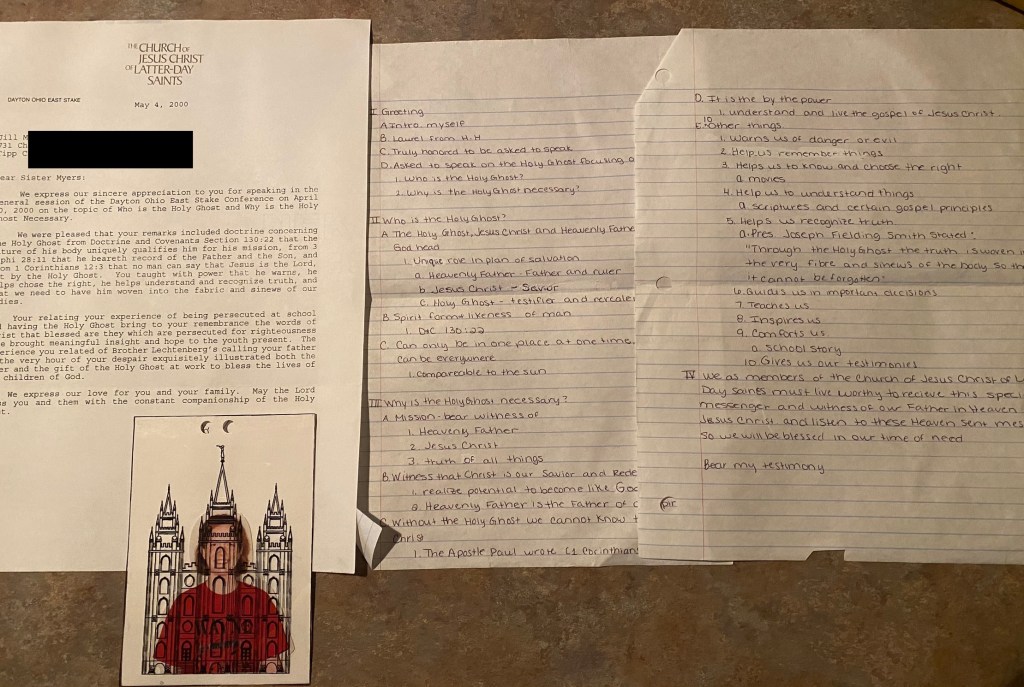 THE CHURCH OF
JESUS CHRIST
OF LATTER-DAY
SAINTS
DAYTON OHIO EAST STAKE
May 4, 2000
ill M
731 Ch
ipp C
ear Sister Myers:
We express our sincere appreciation to you for speaking in the
eneral session of the Dayton Ohio East Stake Conference on April
0, 2000 on the topic of Who is the Holy Ghost and Why is the Holy
host Necessary.
We were pleased that your remarks included doctrine concerning
he Holy Ghost from Doctrine and Covenants Section 130:22 that the
ture of his body uniquely qualifies him for his mission, from 3
phi 28:11 that he beareth record of the Father and the Son, and
om 1 Corinthians 12:3 that no man can say that Jesus is the Lord,
t by the Holy Ghost. You taught with power that he warns, he
lps chose the right, he helps understand and recognize truth, and
at we need to have him woven into the fabric and sinewe of our
dies.
Your relating your experience of being persecuted at school
d having the Holy Ghost bring to your remembrance the words of
rist that blessed are they which are persecuted for righteousness
e brought meaningful insight and hope to the youth present. The
perience you related of Brother Lechtenberg's calling your father
the very hour of your despair exquisitely illustrated both the
er and the gift of the Holy Ghost at work to bless the lives of
children of God.
We express our love for you and your family. May the Lord
s you and them with the constant companionship of the Holy
t.
I Greeting
A. Intro. myself
B. Laurel from H.H
C. Truly honored to be asked to speak
D. Asked to speak on the Holy Ghost focusing o
1. Who is the Holy Ghost?
2. Why is the Holy Ghost necessary?
II Who is the Holy Ghost?
A. The Holy Ghost, Jesus Christ and Heavenly Fathe
God head
1. Unique role in plan of salvation
a. Heavenly Father - Father and ruler
b. Jesus Christ - Savior
c. Holy Ghost - testifier and revealer
B. Spirit form of likeness of man
1. D&C 130:22
C. Can only be in one place at one time.
Can be everywhere
1. Compareable to the sun
III Why is the Holy Ghost necessary?
A. Mission - bear witness of
1. Heavenly Father
2. Jesus Christ
3. truth of all things
B. Witness that Christ is our Savior and Rede
1. realize potential to become like Go
2. Heavenly Father is the Father of
C. Without the Holy Ghost we cannot know t
Christ
1. The Apostle Paul wrote (1 Corinthian
D. It is the by the power
1. understand and live the gospel of Jesus Christ.
E. 10 Other things
1. Warns us of danger or evil
2. Help us remember things
3. Helps us to know and choose the right
a. movies
4. Help us to understand things
a. scriptures and certain gospel principles
5. Helps us recognize truth
a. Pres. Joseph Fielding Smith stated:
"Through the Holy Ghost the truth is woven in
the very fibre and sinews of the body so th
it cannot be forgotten"
6. Guides us in important decisions
7. Teaches us
8. Inspires us
9. Comforts us
a. School story
10. Gives us our testimonies
IV We as members of the Church of Jesus Christ of L
Day saints must live worthy to recieve this speci
messenger and witness of our Father in Heaven
Jesus Christ and listen to these Heaven sent mes
So we will be blessed in our time of need
Bear my testimony